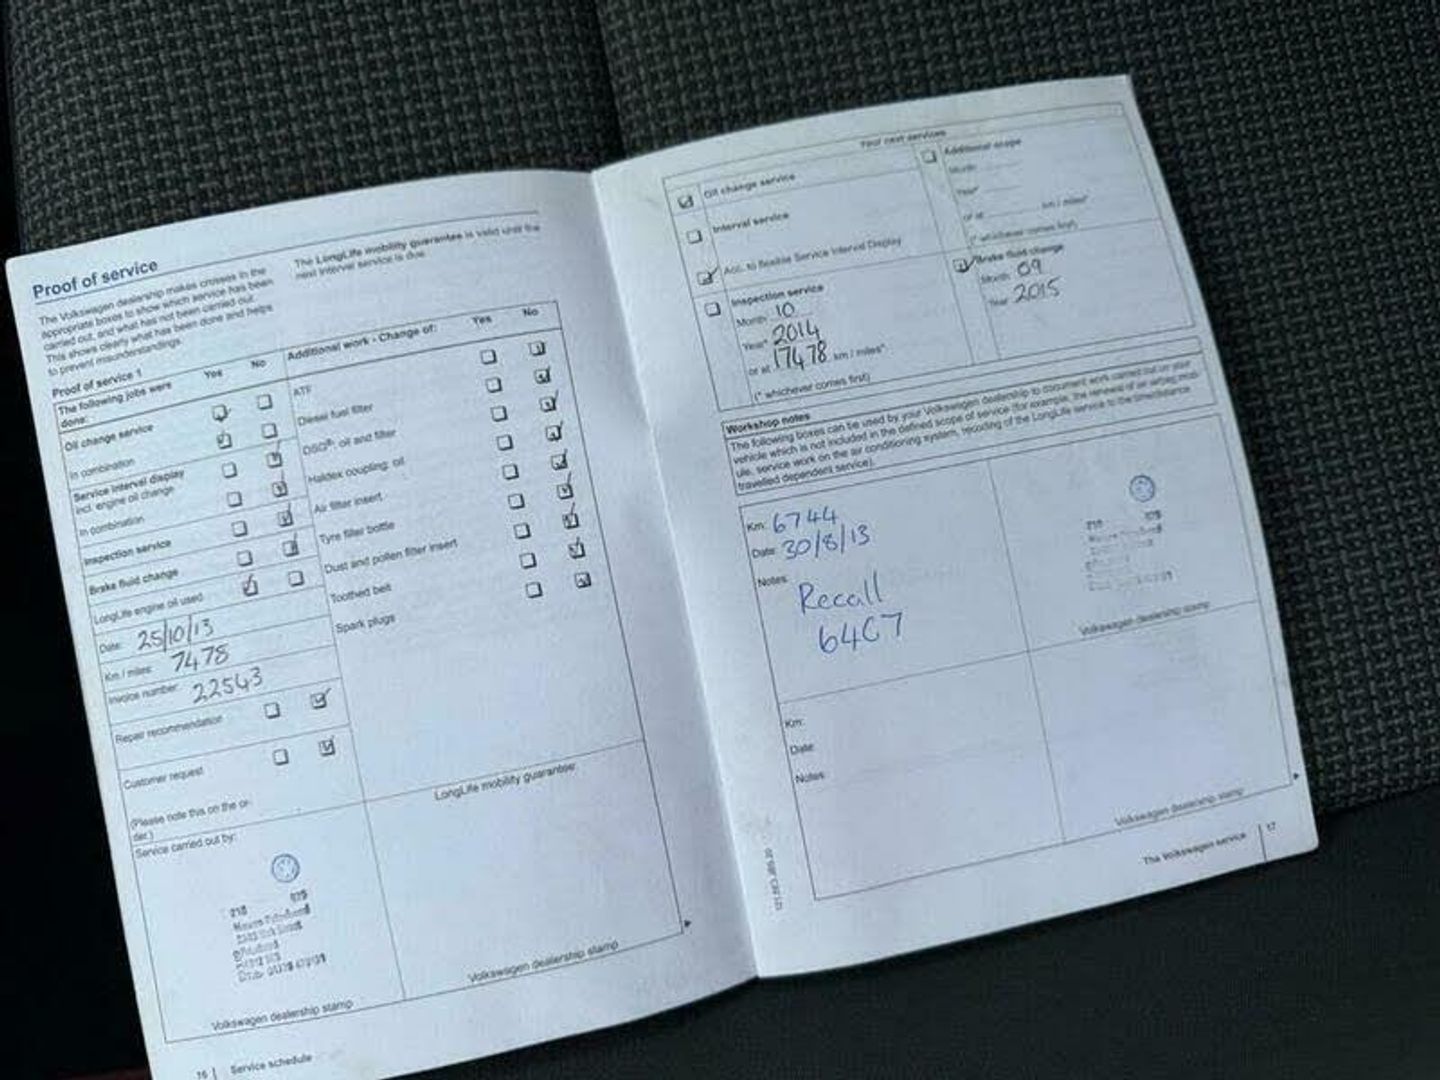 Proof of service
The Volkswagen dealership makes crosses in the
appropriate boxes to show which service has been
carried out, and what has not been carried out.
This shows clearly what has been done and helps
to prevent misunderstandings.
The LongLife mobility guarantee is valid until the
next interval service is due.
Proof of service 1
The following jobs were
done:
Yes No
Oil change service
In combination
Service interval display
incl. engine oil change
In combination
Inspection service
Brake fluid change
LongLife engine oil used
Date: 25/10/13
Km / miles: 7478
Invoice number: 22543
Repair recommendation
Customer request
(Please note this on the or-
der.)
Service carried out by:
218
Volkswagen dealership stamp
Additional work - Change of:
Yes No
ATF
Diesel fuel filter
DSG®: oil and filter
Haldex coupling: oil
Air filter insert
Tyre filler bottle
Dust and pollen filter insert
Toothed belt
Spark plugs
LongLife mobility guarantee:
Volkswagen dealership stamp
16 | Service schedule
Your next services
Oil change service
Interval service
Acc. to flexible Service Interval Display
Inspection service
Month 10
Year* 2014
or at 17478 km / miles*
(* whichever comes first)
Additional scope
Month
Year*
or at km / miles*
(* whichever comes first)
Brake fluid change
Month 09
Year 2015
Workshop notes
The following boxes can be used by your Volkswagen dealership to document work carried out on your
vehicle which is not included in the defined scope of service (for example, the renewal of an airbag mod-
ule, service work on the air conditioning system, recording of the LongLife service to the time/distance
travelled dependent service).
Km: 6744
Date: 30/8/13
Notes:
Recall
64C7
218
Volkswagen dealership stamp
Km:
Date:
Notes:
Volkswagen dealership stamp
The Volkswagen service | 17